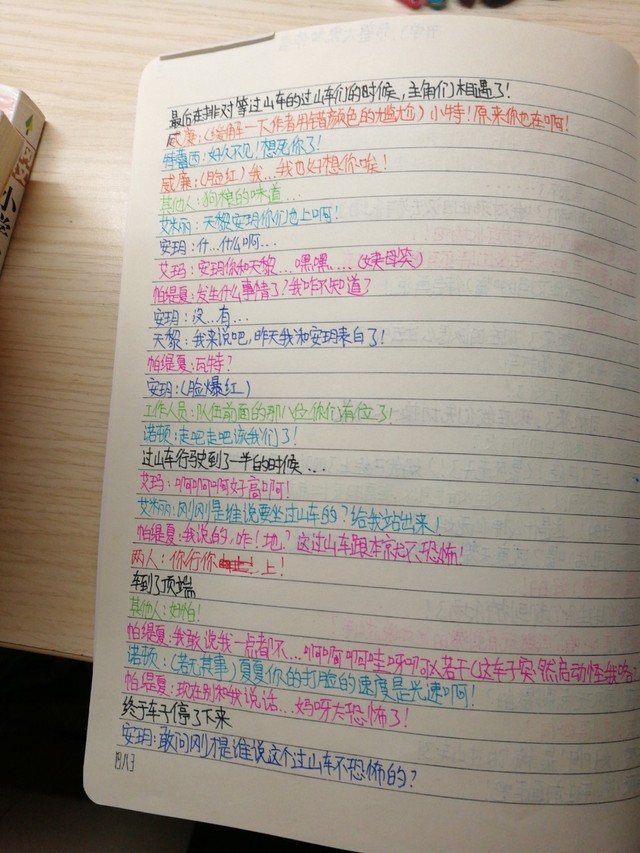 最后在排对等过山车的过山车们的时候，主角们相遇了！
威廉：(缓解一下作者用错颜色的尴尬) 小特！原来你也在啊！
特蕾西：好久不见！想死你了！
威廉：(脸红) 我…我也好想你唉！
其他人：狗粮的味道…
艾米丽：天黎安玥你们也上啊！
安玥：什…什么啊…
艾玛：安玥你和天黎…嘿嘿……(姨母笑)
帕缇夏：发生什么事情了？我咋不知道？
安玥：没…有…
天黎：我来说吧，昨天我和安玥表白了！
帕缇夏：瓦特？
安玥：(脸爆红)
工作人员：队伍前面的那八位你们有位了！
诺顿：走吧走吧该我们了！
过山车行驶到了一半的时候…
艾玛：啊啊啊好高啊！
艾米丽：刚刚是谁说要坐过山车的？给我站出来！
帕缇夏：我说的，咋！地？这过山车跟本就不恐怖！
两人：你行你上！
车到了顶端
其他人：好怕！
帕缇夏：我敢说我一点都不…啊啊啊哇呀啊X若干(这车子突然启动怪我咯？
诺顿：(若无其事) 夏夏你的打脸的速度是光速啊！
帕缇夏：现在别和我说话…妈呀太恐怖了！
终于车子停了下来
安玥：敢问刚才是谁说这个过山车不恐怖的？
小学